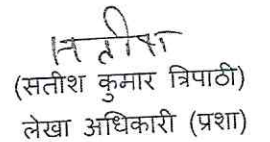 सतीश
(सतीश कुमार त्रिपाठी)
लेखा अधिकारी (प्रशा)